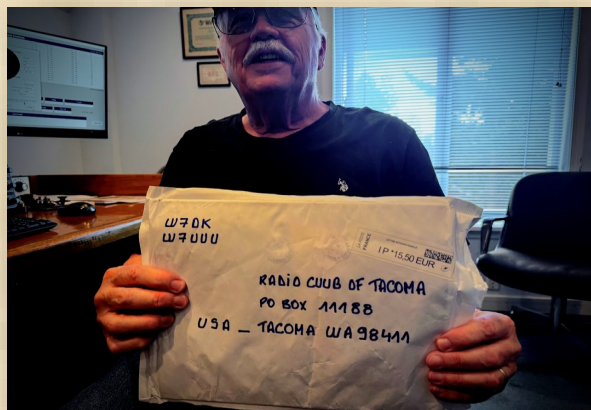 W7DK
W7UUU
LA POSTE
FRANCE
IP *15,50 EUR
RADIO CLUB OF TACOMA
PO BOX 11188
USA _ TACOMA WA 98411